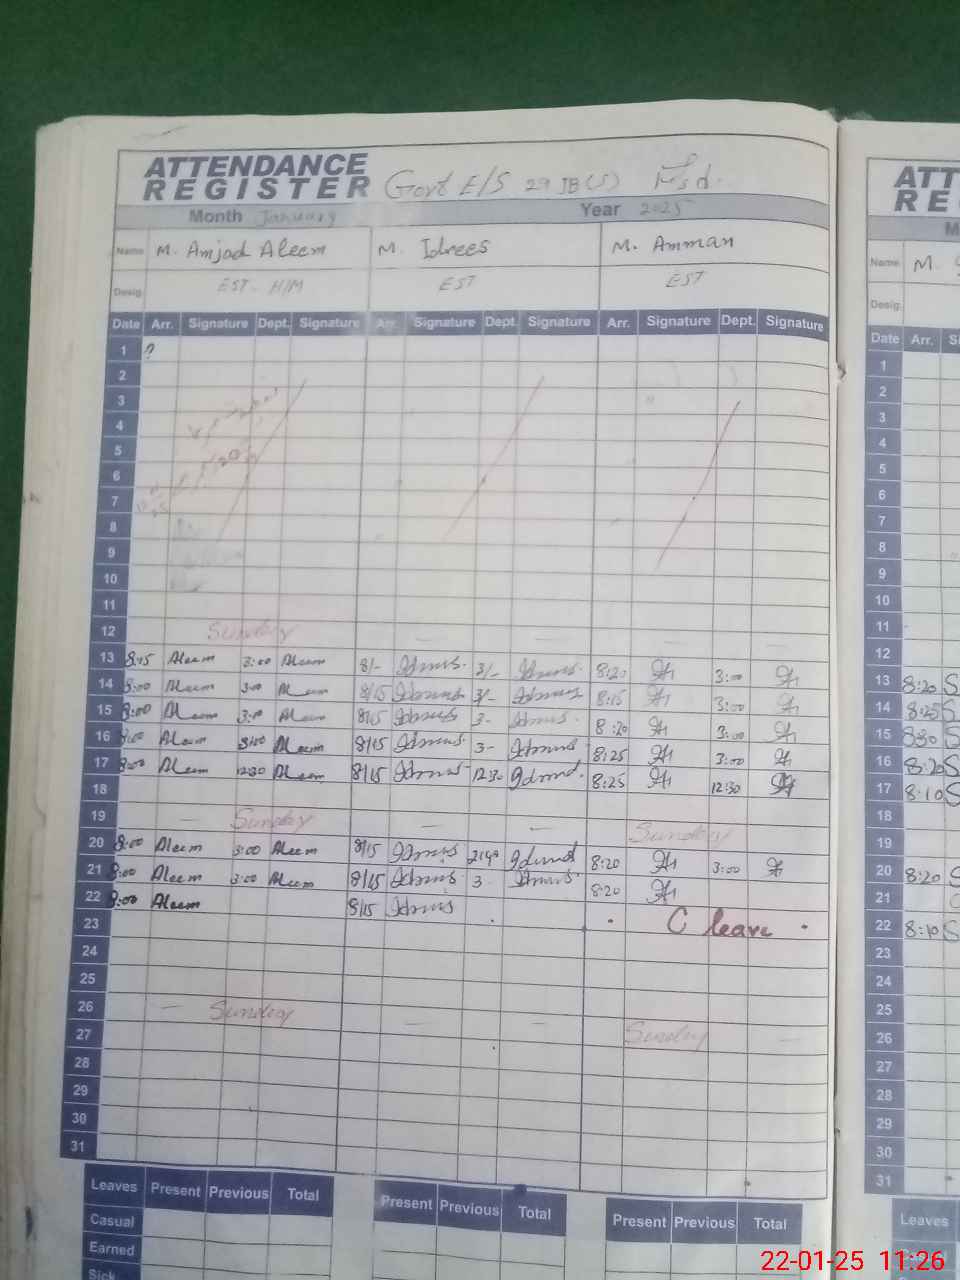 ATTENDANCE
REGISTER Govt E/S 29 JB(S) Fsd.
Month January Year 2025
Name M. Amjad Aleem M. Idrees M. Amman
Desig. EST. H/M EST EST
Date Arr. Signature Dept. Signature Arr. Signature Dept. Signature Arr. Signature Dept. Signature
1
2
3
4
5
6
7
8
9
10
11
12 Sunday
13 8:15 Aleem 3:00 Aleem 8/- Idrees 3/- Idrees 8:20 3:00
14 8:00 Aleem 3:00 Aleem 8/15 Idrees 3/- Idrees 8:15 3:00
15 8:00 Aleem 3:00 Aleem 8/15 Idrees 3- Idrees 8:20 3:00
16 8:00 Aleem 3:00 Aleem 8/15 Idrees 3- Idrees 8:25 3:00
17 8:00 Aleem 12:30 Aleem 8/15 Idrees 12:30 Idrees 8:25 12:30
18
19 Sunday Sunday
20 8:00 Aleem 3:00 Aleem 8/15 Idrees Idrees 8:20 3:00
21 8:00 Aleem 3:00 Aleem 8/15 Idrees 3- Idrees 8:20
22 8:00 Aleem 8/15 Idrees C leave
23
24
25
26 Sunday Sunday
27
28
29
30
31
Leaves Present Previous Total Present Previous Total Present Previous Total
Casual
Earned
Sick
ATT
RE
Name M.
Desig.
Date Arr.
1
2
3
4
5
6
7
8
9
10
11
12
13 8:20
14 8:25
15 8:30
16 8:20
17 8:10
18
19
20 8:20
21
22 8:10
23
24
25
26
27
28
29
30
31
Leaves
22-01-25 11:26